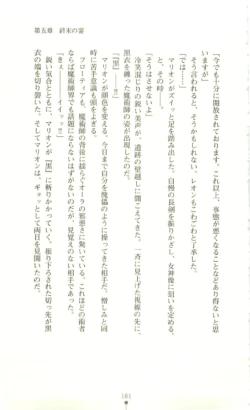 第五章　終末の宴
「今でも十分に開放されております。これ以上、事態が悪くなることなどあり得ないと
いますが」
そう言われると、そんな気もする。オーンもこわごわと了承した。
「では……」
マリオンがズイッと足を踏み出した。自慢の長剣を振りかざし、女神像に狙いを定める、
と、その時――。
「そうはさせないよ」
冷笑混じりの鋭い美声が、遺跡の壁越しに聞こえてきた。一斉に見上げた視線の先に、
黒衣を纏った魔術師の姿が出現したのだ。
「『黒』……!!」
マリオンが顔色を変える。今日まで自分を傀儡のように操ってきた相手だ。憎しみと同
時に苦手意識も頭をよぎる。
フローティアも、魔術師の背後に揺らぐオーラの邪悪さに驚いている。これほどの術者
ならば魔術師界でも噂にならないはずがないのだが、見覚えのない相手であった。
「きぇ――イイイッ!!」
鋭い気合とともに、マリオンが『黒』に斬りかかっていく。振り下ろされた切っ先が黒
衣の端を切り裂いた。そしてマリオンは、ギョッとして両目を見開いたのだ。
181